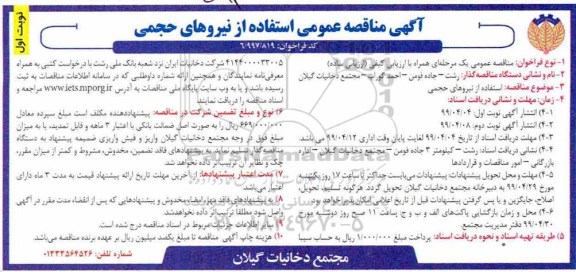 نوبت اول
آگهی مناقصه عمومی استفاده از نیروهای حجمی
کد فراخوان: ۶/۹۹۷/۸۱۹
۱- نوع فراخوان: مناقصه عمومی یک مرحله‌ای همراه با ارزیابی کیفی (ارزیابی ساده)
۲- نام و نشانی دستگاه مناقصه گذار: رشت – جاده فومن – احمد گوراب – مجتمع دخانیات گیلان
۳- موضوع مناقصه: استفاده از نیروهای حجمی
۴- زمان: مهلت و نشانی دریافت اسناد:
۴-۱) انتشار آگهی نوبت اول: ۹۹/۰۴/۰۴
۴-۲) انتشار آگهی نوبت دوم: ۹۹/۰۴/۰۸
۴-۳) مهلت دریافت اسناد از تاریخ ۹۹/۰۴/۰۴ لغایت پایان وقت اداری ۹۹/۰۴/۱۲ می باشد.
۴-۴) نشانی دریافت اسناد: رشت – کیلومتر ۳ جاده فومن – مجتمع دخانیات گیلان – اداره
بازرگانی – امور مناقصات و قراردادها
۴-۵) مهلت و محل تحویل پیشنهادات: پیشنهادات می‌بایست حداکثر تا ساعت ۱۷ روز یکشنبه
مورخ ۹۹/۰۴/۲۹ به دبیرخانه مجتمع دخانیات گیلان تحویل گردد. هرگونه تسلیم، تحویل،
اصلاح، جایگزین و یا پس گرفتن پیشنهادات قبل از تاریخ اعلامی امکان پذیر خواهد بود.
۴-۶) محل و زمان بازگشایی پاکت‌های الف و ب و ج ساعت ۱۱ صبح روز دوشنبه مورخ
۹۹/۰۴/۳۰ دفتر مدیریت مجتمع
۵) طریقه تهیه اسناد و نحوه دریافت اسناد: پرداخت مبلغ ۱/۰۰۰/۰۰۰ ریال به حساب سیبا
۴۱۲۴۴۰۰۰۰۳۳۰۰۵ شرکت دخانیات ایران نزد شعبه بانک ملی رشت با درخواست کتبی به همراه
معرفی‌نامه نمایندگان و همچنین ارائه شماره داوطلبی که در سامانه اطلاعات مناقصات به ثبت
رسیده باشد و یا به وب سایت پایگاه ملی مناقصات به آدرس iets.mporg.ir مراجعه و
اسناد مناقصه را دریافت نمایند.
۶) نوع و مبلغ تضمین شرکت در مناقصه: پیشنهاددهنده مکلف است مبلغ سپرده معادل
۶۶۹/۰۰۰/۰۰۰ ریال را به صورت اصل ضمانت بانکی با اعتبار ۳ ماهه و قابل تمدید، یا به میزان
مبلغ فوق در وجه مجتمع دخانیات گیلان واریز و فیش واریزی ضمیمه پیشنهاد به دستگاه
مناقصه‌گذار تسلیم نماید به پیشنهادهای فاقد تضمین، مخدوش، مشروط و کمتر از میزان مقرر،
چک و نظایر آن ترتیب اثر داده نخواهد شد.
۷) مدت اعتبار پیشنهادها: از آخرین مهلت تاریخ ارائه پیشنهاد قیمت به مدت ۳ ماه دارای
اعتبار می‌باشد.
۸) به پیشنهادهای فاقد مهر، امضاء، مخدوش و پیشنهادهایی که پس از انقضاء مدت مقرر در آگهی
واصل شود مطلقا ترتیب اثر داده نخواهد شد.
۹) سایر اطلاعات جزئیات مربوط در اسناد مناقصه درج شده است.
۱۰) هزینه چاپ آگهی مناقصه تا مبلغ یکصد میلیون ریال بر عهده برنده مناقصه می‌باشد.
شماره تلفن: ۰۱۳۳۳۵۶۴۵۲۶
مجتمع دخانیات گیلان